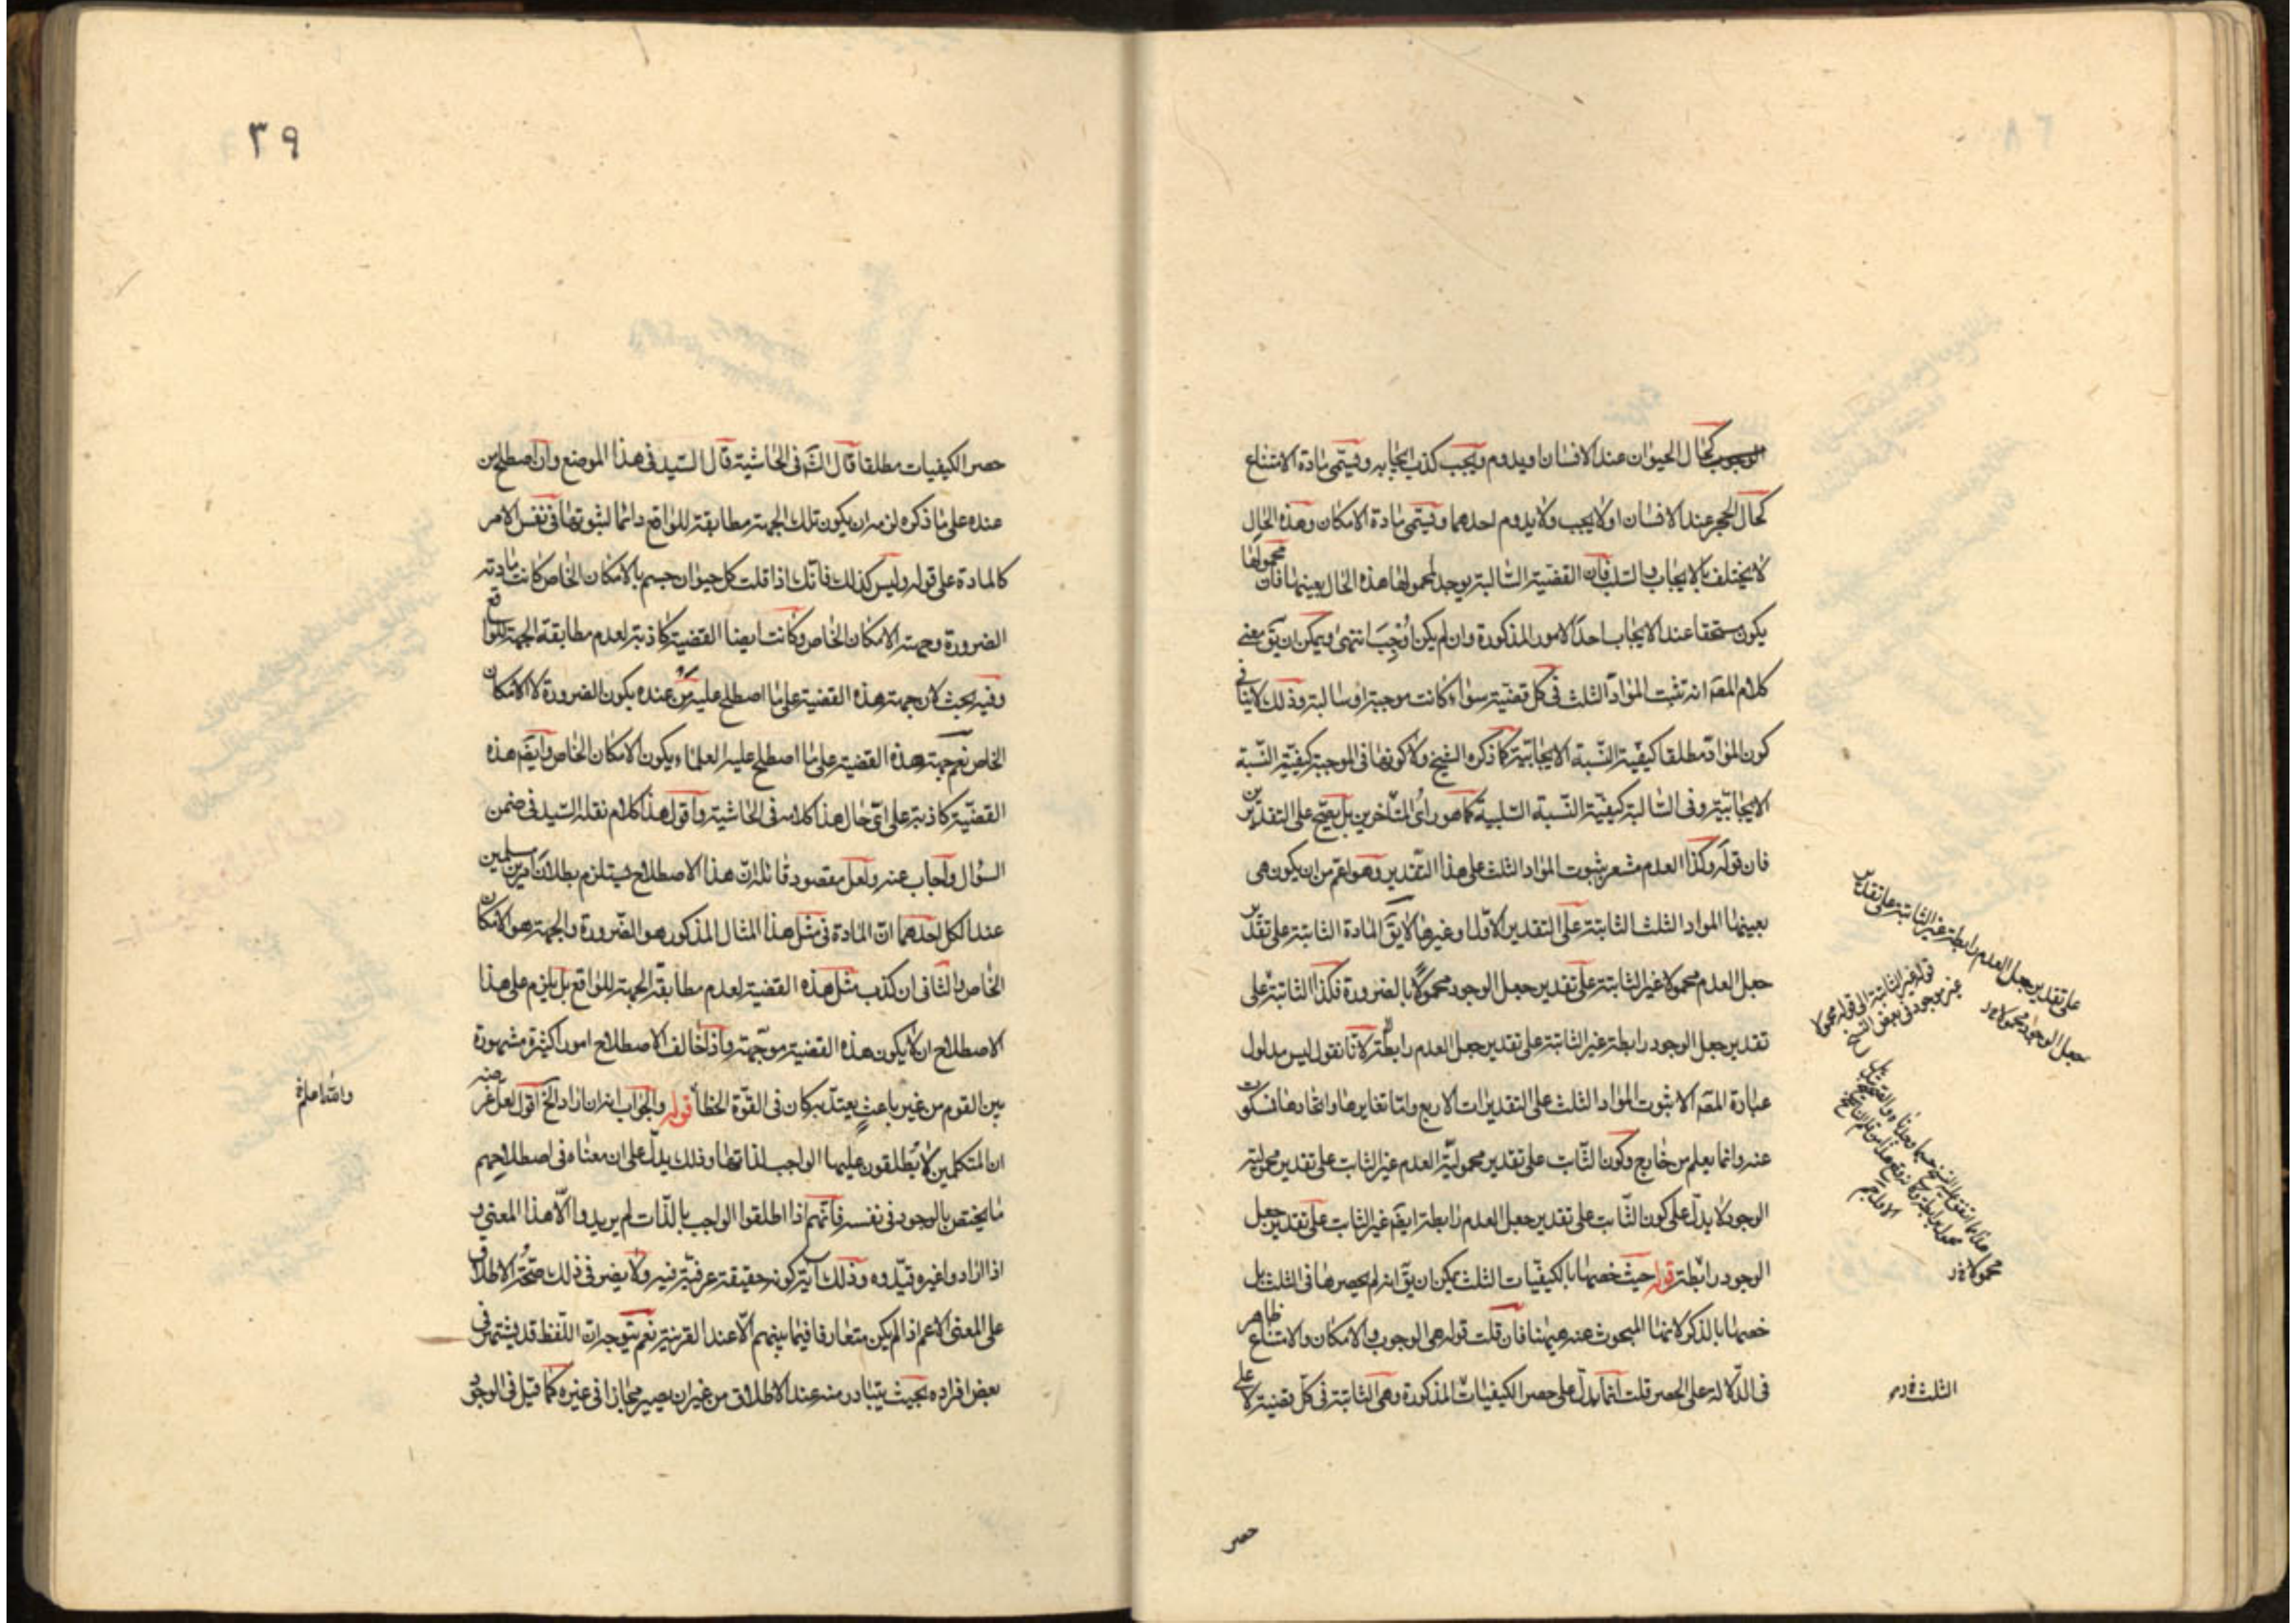 كحال الحيوان عند الانسان او يدوم ويجب كذب ايجابه ويسمى مادة الامتناع
كحال الحجر عند الانسان او لا يجب ولا يدوم احدهما ويسمى مادة الامكان وهذه الحال
لا يختلف بالايجاب والسلب فان القضية السالبة يوجد لمحمولها هذه الحال بعينها فان محمولها
يكون مستحقا عند الايجاب احد الامور المذكورة وان لم يكن اوجب انتهى ويمكن ان يق معنى
كلام المصَ انه تثبت المواد الثلث فى كل قضية سواء كانت موجبة او سالبة وذلك لا ينافى
كون المواد مطلقا كيفية النسبة الايجابية كما ذكره الشيخ ولا كونها فى الموجبة كيفية النسبة
الايجابية وفى السالبة كيفية النسبة السلبية كما هو راى المتاخرين بل يصح على التقديرين
فان قوله وكذا العدم مشعر بثبوت المواد الثلث على هذا التقدير وهو اعم من ان يكون هى
بعينها المواد الثلث الثابتة على التقدير الاول او غيرها لا يق المادة الثابتة على تقدير
جعل العدم محمولا غير الثابتة على تقدير جعل الوجود محمولا بالضرورة فكذا الثابتة على
تقدير جعل الوجود رابطة غير الثابتة على تقدير جعل العدم رابطة لانا نقول ليس مدلول
عبارة المصَ الا ثبوت المواد الثلث على التقديرات الاربع واما تغايرها واتحادها فسكوت
عنه وانما يعلم من خارج وكون الثابت على تقدير محمولية العدم غير الثابت على تقدير محمولية
الوجود لا يدل على كون الثابت على تقدير جعل العدم رابطة ايضَ غير الثابت على تقدير جعل
الوجود رابطة قوله حيث خصها بالكيفيات الثلث يمكن ان يق انه لم يحصرها فى الثلث بل
خصها بالذكر لانها المبحوث عنه ههنا فان قلت قوله هى الوجوب والامكان والامتناع ظاهر
فى الدلالة على الحصر قلت انما يدل على حصر الكيفيات المذكورة وهى الثابتة فى كل قضية لا على
على تقدير جعل العدم رابطة غير الثابتة على تقدير
جعل الوجود محمولا
قوله غير الثابتة الى قوله محمولا
غير موجود فى بعض النسخ
محمولا
الثلث
حصر
٣٩
حصر الكيفيات مطلقا قال الشَ فى الحاشية قال السيد فى هذا الموضع وان اصطلح من
عنده على ما ذكره لزمه ان يكون تلك الجهة مطابقة للواقع دائما لثبوتها فى نفس الامر
كالمادة على قوله وليس كذلك فانك اذا قلت كل حيوان جسم بالامكان الخاص كانت مادته
الضرورة وجهته الامكان الخاص وكانت ايضا القضية كاذبة لعدم مطابقة الجهة للواقع
وفيه بحث لان جهة هذه القضية على ما اصطلح عليه من عنده يكون الضرورة لا الامكان
الخاص نعم جهة هذه القضية على ما اصطلح عليه العلماء يكون الامكان الخاص وايضَ هذه
القضية كاذبة على اى حال هذا كلامه فى الحاشية واقول هذا كلام نقله السيد فى ضمن
السؤال واجاب عنه ولعل مقصود قائله ان هذا الاصطلاح يستلزم بطلان امرين مسلمين
عند الكل احدهما ان المادة فى مثل هذا المثال المذكور هو الضرورة والجهة هو الامكان
الخاص والثانى ان كذب مثل هذه القضية لعدم مطابقة الجهة للواقع بل يلزم على هذا
الاصطلاح ان لا يكون هذه القضية موجهة واذا خالف الاصطلاح امورا كثيرة مشهورة
بين القوم من غير باعث يعتد به كان فى القوة الخطأ قوله والجواب انه ان اراد الخ اقول لعل غرضه
ان المتكلمين لا يطلقون عليها الواجب لذاتها وذلك يدل على ان معناه فى اصطلاحهم
ما يختص بالوجود فى نفسه فانهم اذا اطلقوا الواجب بالذات لم يريدوا الا هذا المعنى و
اذا ارادوا غيره قيدوه وذلك آية كونه حقيقة عرفية فيه ولا يضر فى ذلك صحة الاطلاق
على المعنى الاعم اذا لم يكن متعارفا فيما بينهم الا عند القرينة نعم يتوجه ان اللفظ قد يشتهر فى
بعض افراده بحيث يتبادر منه عند الاطلاق من غير ان يصير مجازا فى غيره كما قيل فى الوجود
والله اعلم